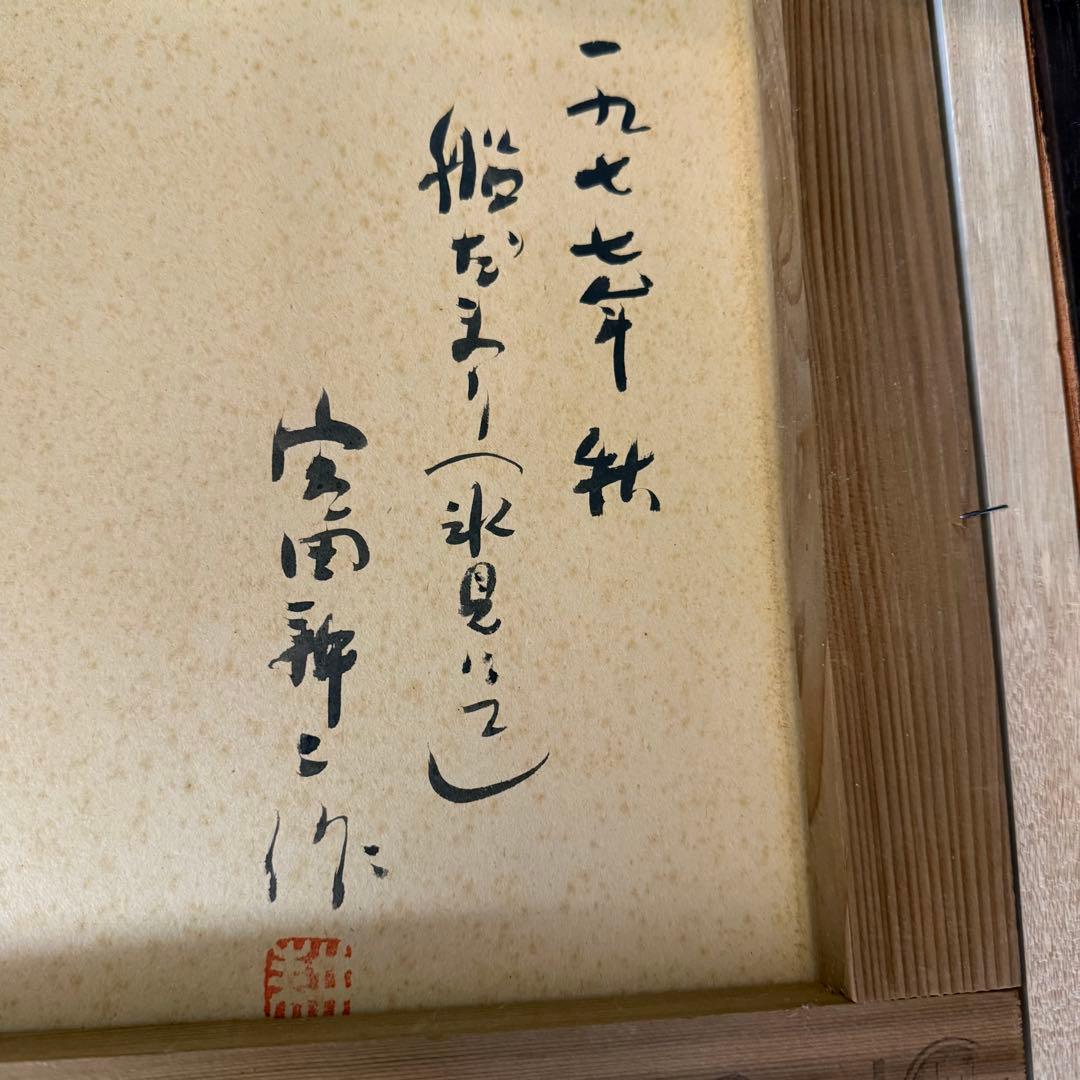 一九七七年 秋
船だまり(氷見にて)
田 二 作